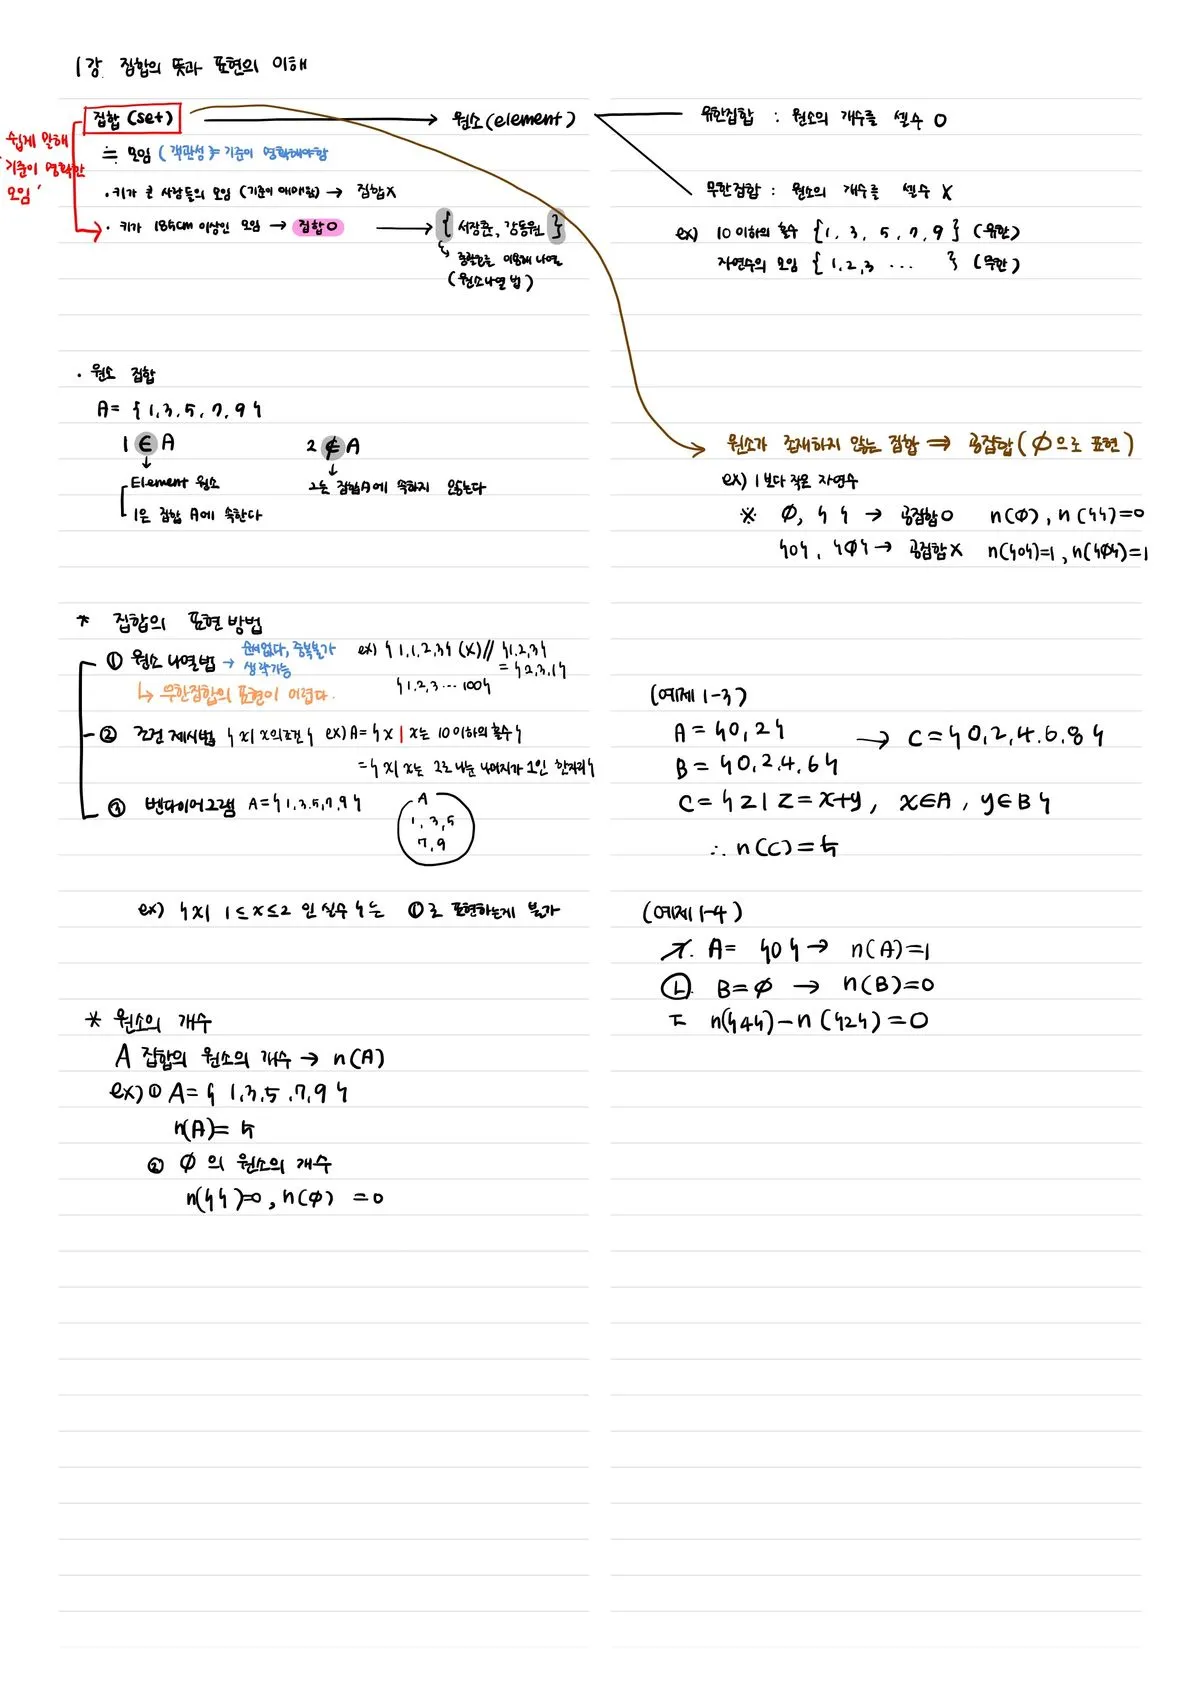 1강 집합의 뜻과 표현의 이해
집합(set) → 원소(element)
쉽게 말해
'기준이 명확한
모임'
≒ 모임 (객관성 ≒ 기준이 명확해야함
· 키가 큰 사람들의 모임 (기준이 애매함) → 집합X
· 키가 185cm 이상인 모임 → 집합O → { 서장훈, 강동원 }
중괄호를 이용해 나열
(원소나열법)
유한집합 : 원소의 개수를 셀수 O
무한집합 : 원소의 개수를 셀수 X
ex) 10이하의 홀수 {1, 3, 5, 7, 9} (유한)
자연수의 모임 {1, 2, 3 ... } (무한)
· 원소 집합
A= {1, 3, 5, 7, 9}
1 ∈ A 2 ∉ A
Element 원소
1은 집합 A에 속한다
2는 집합A에 속하지 않는다
원소가 존재하지 않는 집합 ⇒ 공집합(∅으로 표현)
ex) 1보다 작은 자연수
※ ∅, { } → 공집합O n(∅), n({})=0
{0}, {∅} → 공집합X n({0})=1, n({∅})=1
* 집합의 표현 방법
① 원소 나열법 → 순서없다, 중복불가
생략가능
ex) {1,1,2,3} (X) // {1,2,3}
= {2,3,1}
{1,2,3 ... 100}
↳ 무한집합의 표현이 어렵다.
② 조건 제시법 {x| x의조건} ex) A= {x | x는 10이하의 홀수}
= {x| x는 2로 나눈 나머지가 1인 한자리}
③ 벤다이어그램 A={1,3,5,7,9}
A
1, 3, 5
7, 9
ex) {x| 1≤x≤2 인 실수}는 ①로 표현하는게 불가
* 원소의 개수
A 집합의 원소의 개수 → n(A)
ex) ① A= {1,3,5,7,9}
n(A)= 5
② ∅ 의 원소의 개수
n({ })=0, n(∅) =0
(예제 1-3)
A= {0,2} → C= {0,2,4,6,8}
B= {0,2,4,6}
C= {z | z=x+y, x∈A, y∈B}
∴ n(C)=5
(예제 1-4)
ㄱ. A= {0} → n(A)=1
ㄴ. B=∅ → n(B)=0
ㄷ n({4})-n({2})=0